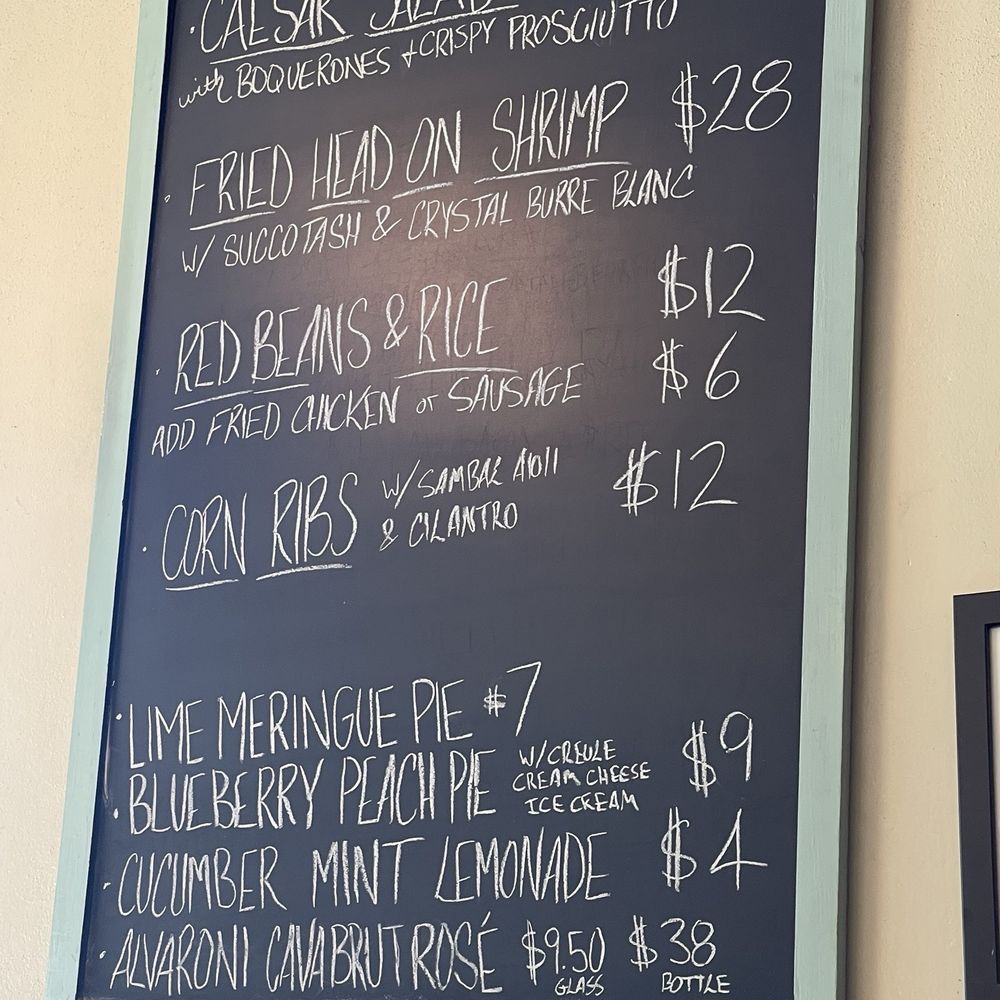 · CAESAR SALAD
with BOQUERONES + CRISPY PROSCIUTTO
· FRIED HEAD ON SHRIMP $28
W/ SUCCOTASH & CRYSTAL BURRE BLANC
· RED BEANS & RICE $12
ADD FRIED CHICKEN or SAUSAGE $6
· CORN RIBS W/ SAMBAL AIOLI $12
& CILANTRO
· LIME MERINGUE PIE $7
· BLUEBERRY PEACH PIE W/ CREOLE $9
CREAM CHEESE
ICE CREAM
· CUCUMBER MINT LEMONADE $4
· ALVARONI CAVA BRUT ROSÉ $9.50 $38
GLASS BOTTLE